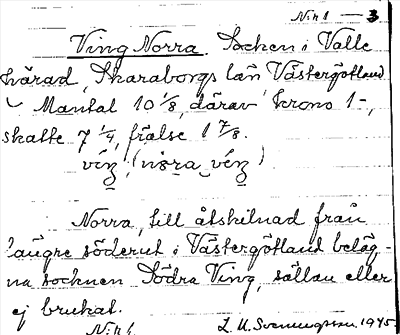 N:r 1 — 3
Ving Norra. Socken i Valle
härad, Skaraborgs län Västergötland
Mantal 10 1/8, därav krono 1-,
skatte 7 1/4, frälse 1 7/8.
vinz, (nåra vénz)
Norra, till åtskilnad från
längre söderut i Västergötland beläg-
na socknen Södra Ving, sällan eller
ej brukat.
N:r 1. L. U. 1945